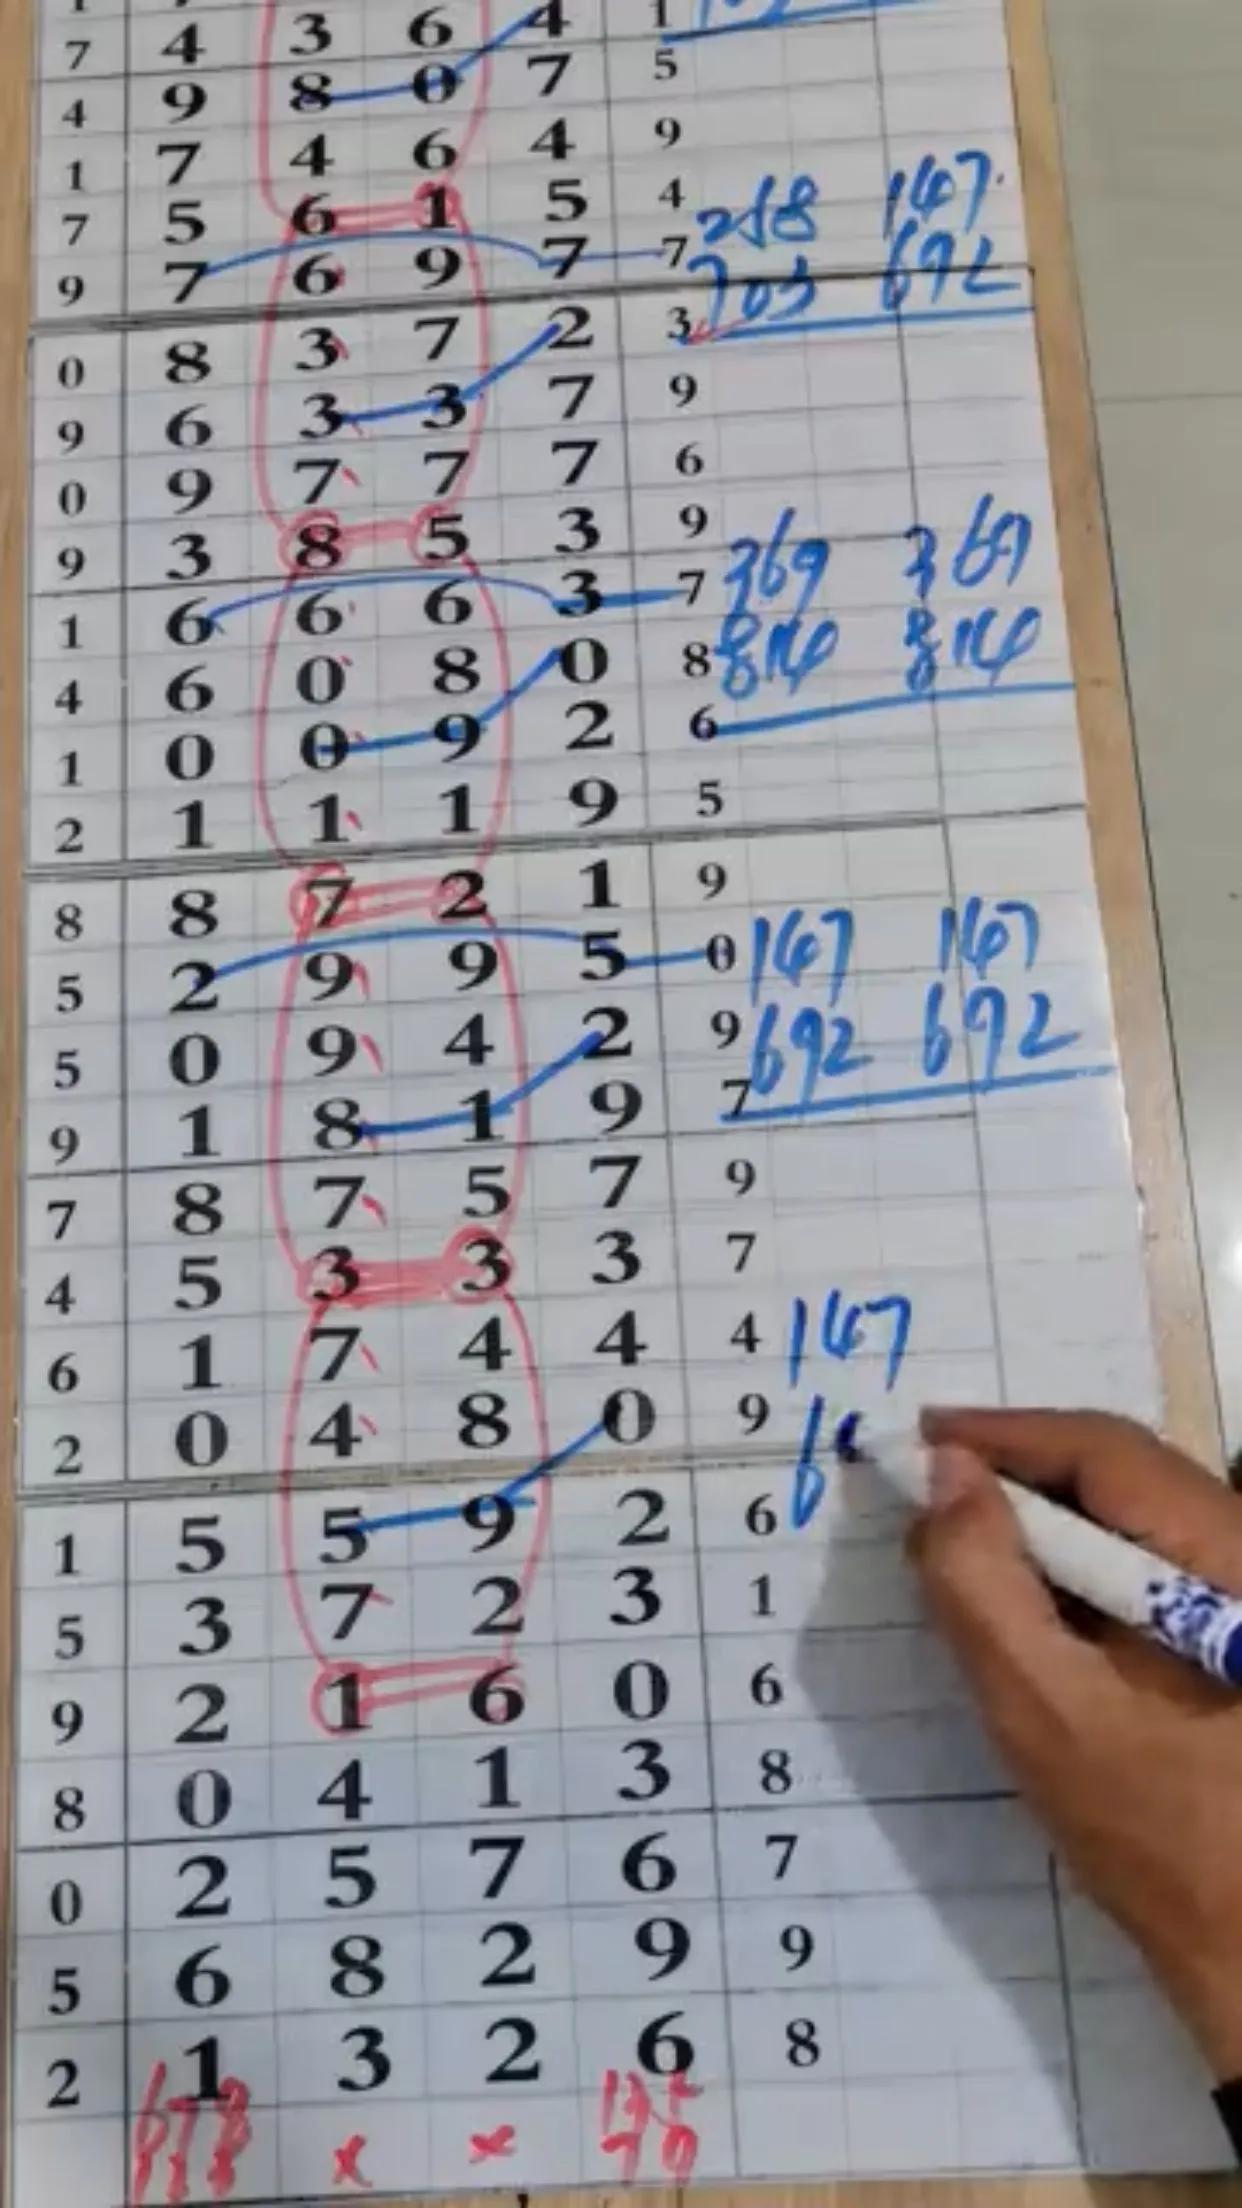 7 4 3 6 4 1
4 9 8 0 7 5
1 7 4 6 4 9
7 5 6 1 5 4 258 147
9 7 6 9 7 7 703 692
0 8 3 7 2 3
9 6 3 3 7 9
0 9 7 7 7 6
9 3 8 5 3 9
1 6 6 6 3 7 369 369
4 6 0 8 0 8 814 814
1 0 0 9 2 6
2 1 1 1 9 5
8 8 7 2 1 9
5 2 9 9 5 0 147 147
5 0 9 4 2 9 692 692
9 1 8 1 9 7
7 8 7 5 7 9
4 5 3 3 3 7
6 1 7 4 4 4 147
2 0 4 8 0 9 6
1 5 5 9 2 6
5 3 7 2 3 1
9 2 1 6 0 6
8 0 4 1 3 8
0 2 5 7 6 7
5 6 8 2 9 9
2 1 3 2 6 8
678 x x